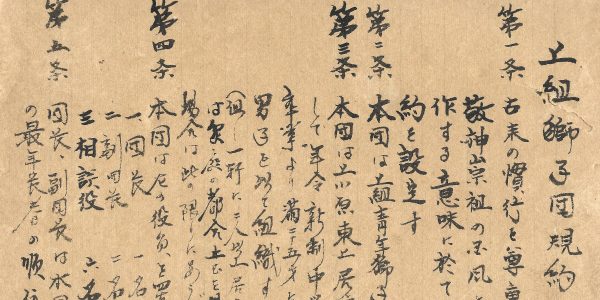 上組獅子団規約
第一条 古来の慣行を尊重
敬神崇祖の本風
作する意味に於て
約を設定す
第二条 本団は上組青年獅
第三条 本団は上川原東土居
して年令新制中学
卒業より満二十五才
男子を以て組織す
(但し一軒に二人以上居
は家庭の都合上
場合は此の限りにあら
第四条 本団は左の役員を置
一団長 一名
二副団長 二名
三相談役 六名
第五条 団長、副団長は本団
の最年長者の順位